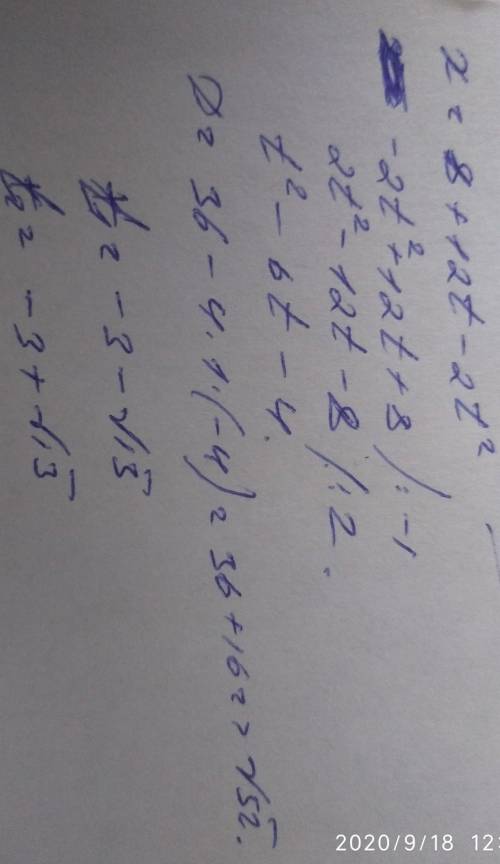 x = 8 + 12t - 2t²
- 2t² + 12t + 8 /: -1
2t² - 12t - 8 /: 2.
t² - 6t - 4.
D = 36 - 4·1·(-4) = 36 + 16 = = √52.
= - 3 - √13
= - 3 + √13
2020/9/18 12: